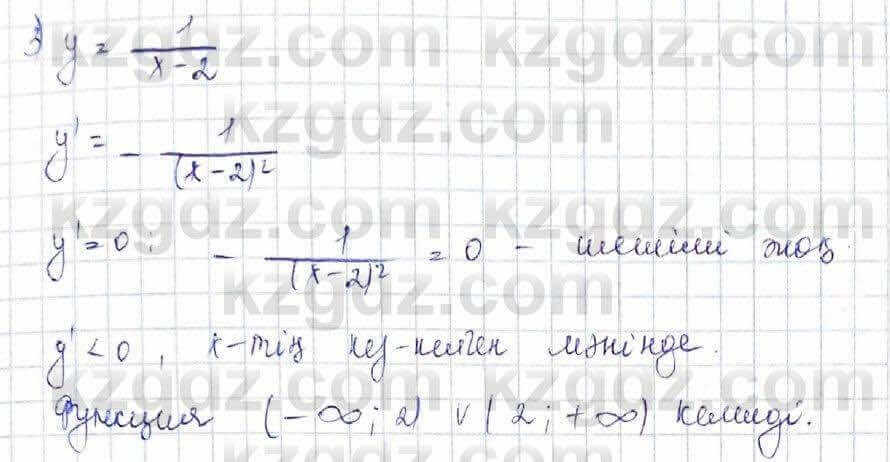 3) y = 1/(x-2)
y' = - 1/(x-2)²
y' = 0 : - 1/(x-2)² = 0 - шешімі жоқ.
y' < 0 , x-тің кез-келген мәнінде.
Функция (-∞; 2) ∨ (2; +∞) кемиді.
kzgdz.com kzgdz.com
kzgdz.com
kzgdz.com kzgdz.com
kzgdz.com
kzgdz.com kzgdz.com